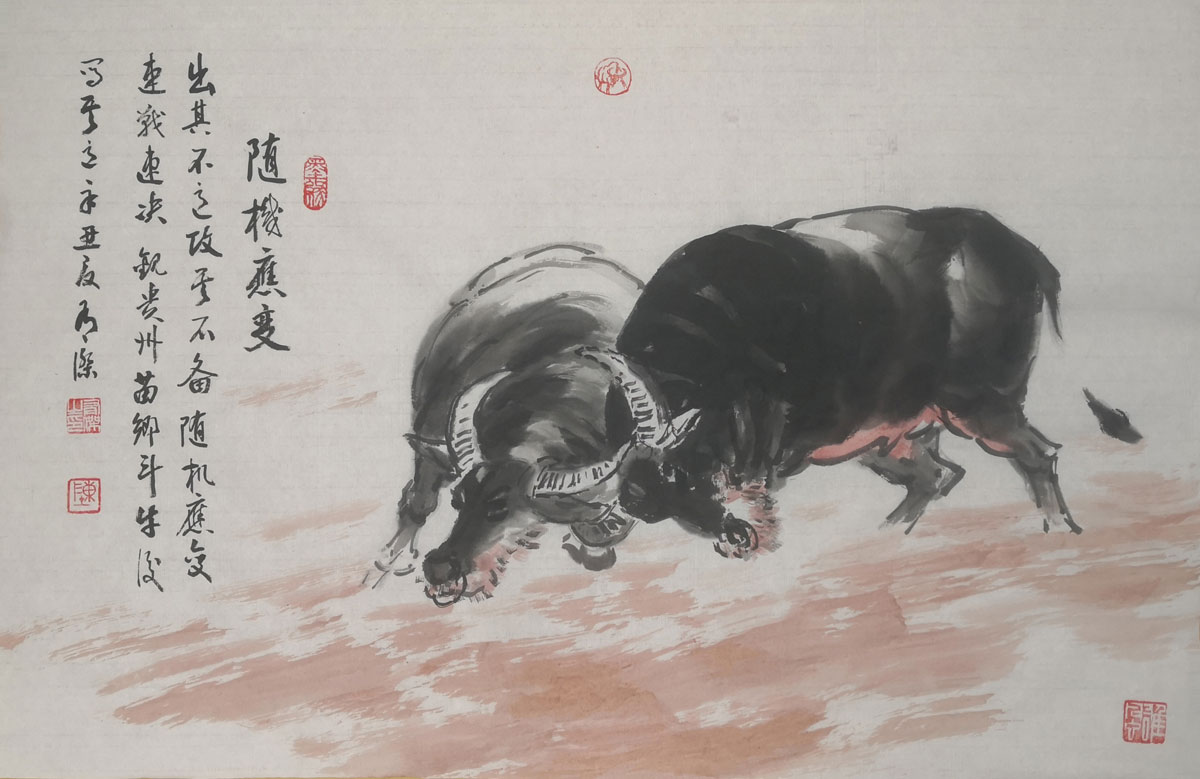 随機應变
出其不意攻其不备随机應变
速戰速决 観贵州苗鄉斗牛後
写其意辛丑夏
陳